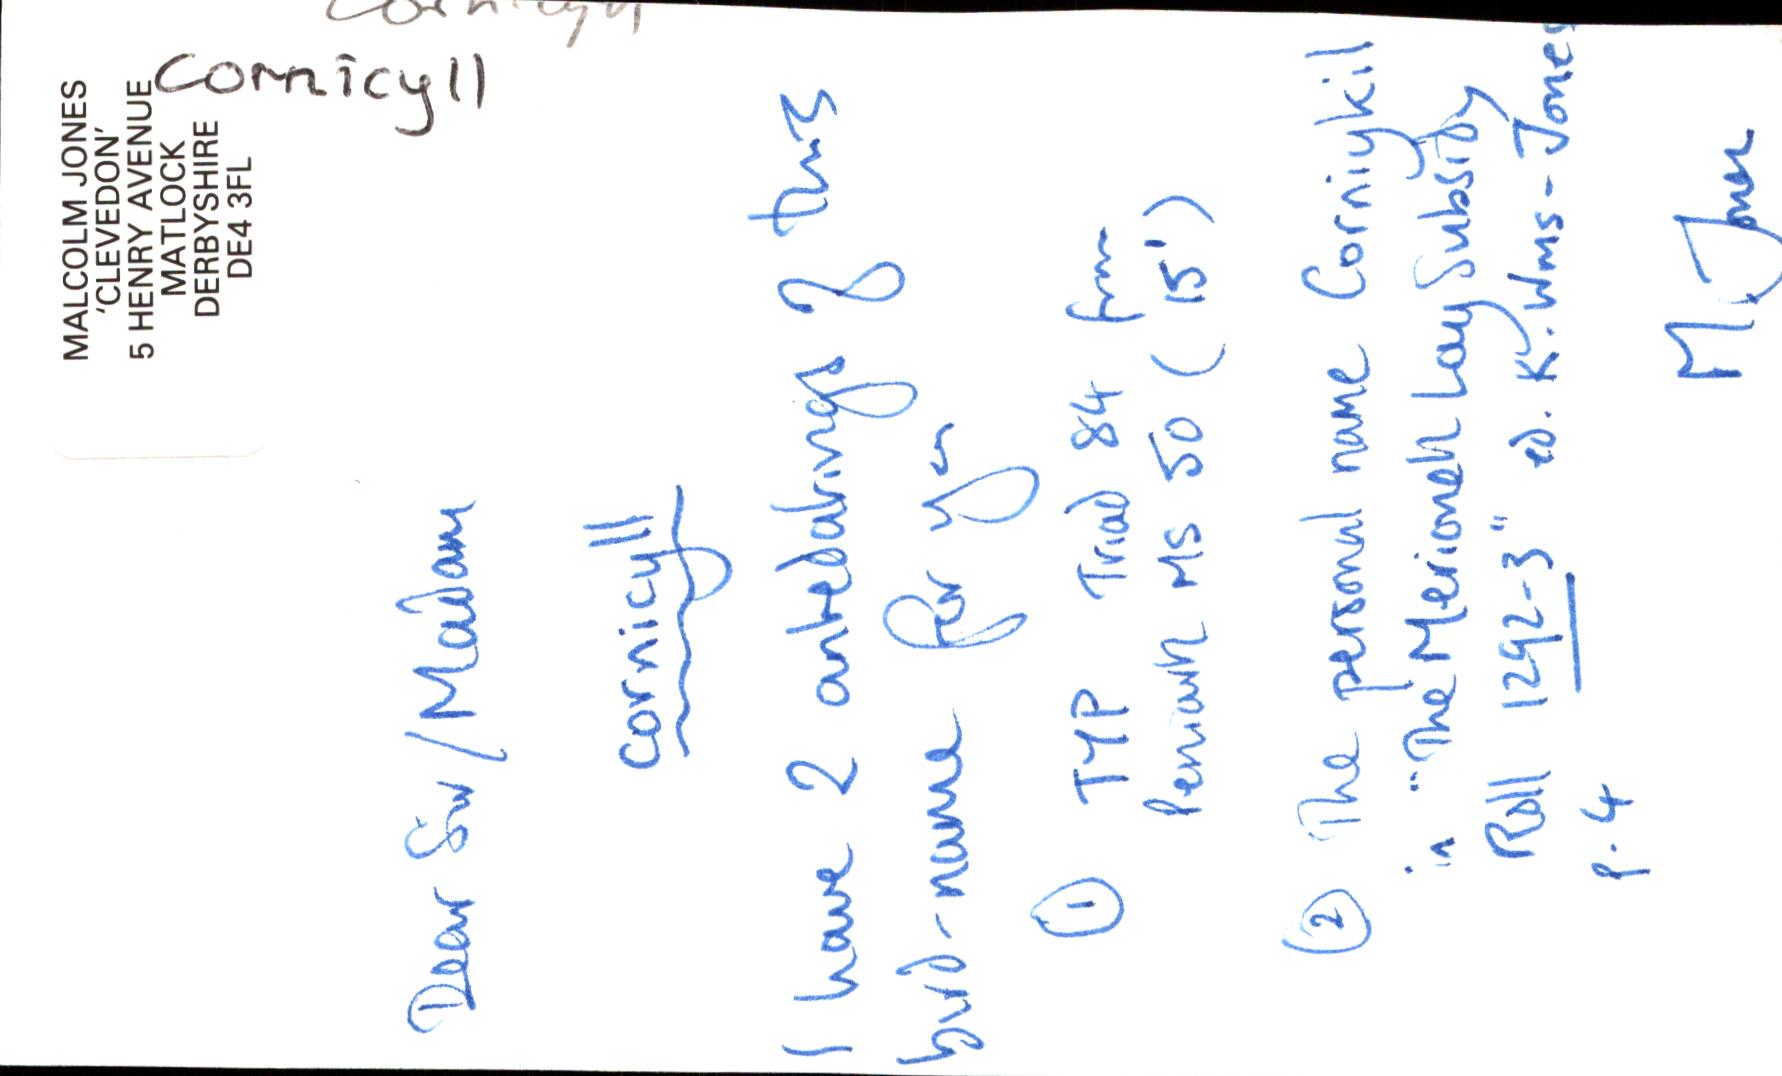 Cornicyll
MALCOLM JONES
'CLEVEDON'
5 HENRY AVENUE
MATLOCK
DERBYSHIRE
DE4 3FL
Dear Sir/Madam
cornicyll
I have 2 antedatings of this
bird-name for you
① TYP Triad 84 from
Peniarth MS 50 (15')
② The personal name Cornykil
in "The Merioneth Lay Subsidy
Roll 1292-3" ed. K. Wms-Jones
p. 4
M. Jones